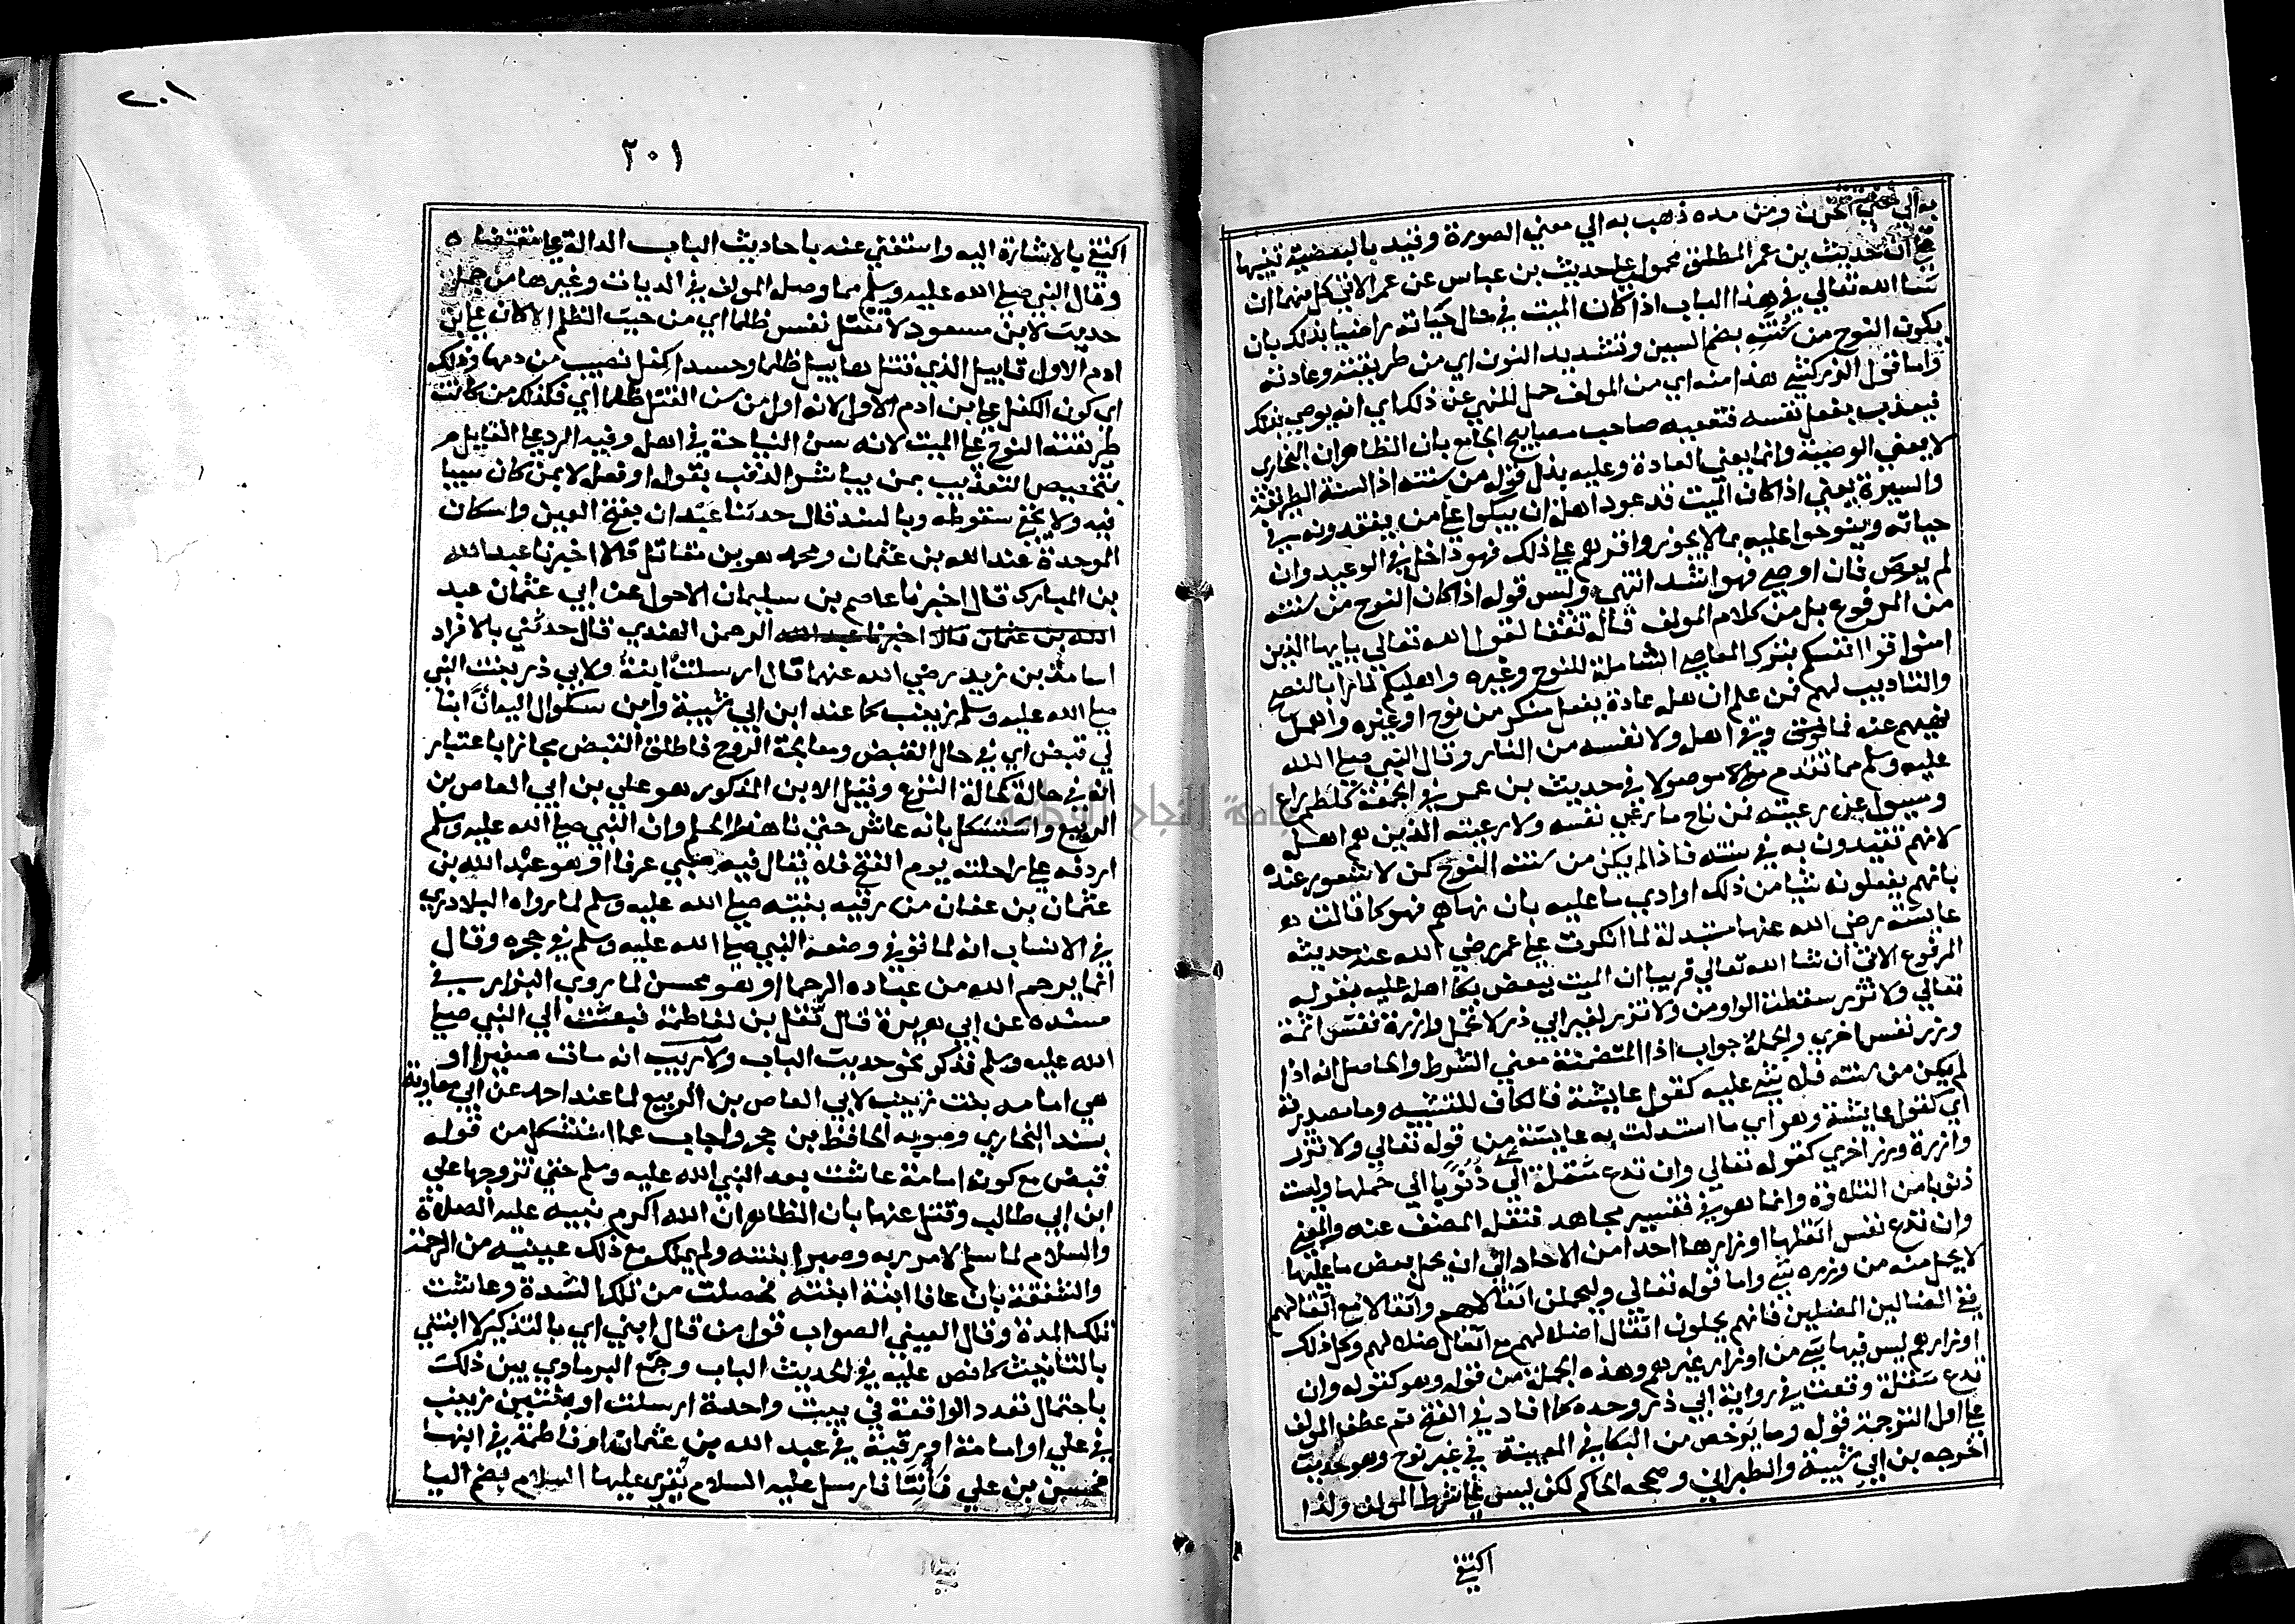 به الي معني الحزن ومن مده ذهب به الي معني الصورة وقيد بالبعضية تنبيها
علي ان حديث بن عمر المطلق محمول علي حديث بن عباس عن عمر الاتي كل منهما ان
شا الله تعالي في هذا الباب اذا كان الميت في حال حياته راضيا بذلك بان
يكون النوح من سُنَّتِهِ بضم السين وتشديد النون اي من طريقته وعادته
واما قول الزركشي هذا منه اي من المولف حمل للنهي عن ذلك اي انه يوصي بذلك
فيعذب بفعل نفسه فتعقبه صاحب مصابيح الجامع بان الظاهر ان البخاري
لا يعني الوصية وانما يعني العادة وعليه يدل قوله من سنته اذ السنة الطريقة
والسيرة يعني اذا كان الميت قد عود اهله ان يبكوا علي من يفقدونه في
حياته وينوحوا عليه بما لا يجوز واقرهم علي ذلك فهو داخل في الوعيد وان
لم يوص فان اوصي فهو اشد انتهي وليس قوله اذا كان النوح من سنته
من المرفوع بل من كلام المولف قاله تفقها لقول الله تعالي يايها الذين
امنوا قوا انفسكم بترك المعاصي الشاملة للنوح وغيره واهليكم نارا بالنصح
والتاديب لهم فمن علم ان لاهله عادة بفعل منكر من نوح او غيره واهمل
نهيهم عنه فما وقي اهله ولا نفسه من النار وقال النبي صلي الله
عليه وسلم مما تقدم موصولا في حديث بن عمر في الجمعة كلكم راع
ومسيول عن رعيته فمن ناح ما رعي نفسه ولا رعيته الذين هم اهله
لانهم يقتدون به في سنته فاذا لم يكن من سنته النوح كمن لا شعور عنده
بانهم يفعلونه شيا من ذلك او ادي ما عليه بان نهاهم فهو كما قالت
عايشة رضي الله عنها مستدلة لما انكرت علي عمر رضي الله عنه حديثه
المرفوع الاتي ان شا الله تعالي قريبا ان الميت يعذب ببعض بكا اهله عليه بقوله
تعالي ولا تزر سقطت الواو من ولا تزر لغير ابي ذر لا تحمل وازرة نفس اثمة
وزر نفس اخري والجملة جواب اذا المتضمنة معني الشرط والحاصل انه اذا
لم يكن من سنته فلا شي عليه كقول عايشة فالكاف للتشبيه وما مصدرية
اي كقول عايشة وهو اي ما استدلت به عايشة من قوله تعالي ولا تزر
وازرة وزر اخري كقوله تعالي وان تدع مثقلة الي ذنوبا الي حملها وليست
ذنوبا من التلاوة وانما هو في تفسير مجاهد فنقله المصنف عنه والمعني
وان تدع نفس اثقلها اوزارها احدا من الاحاد الي ان يحمل بعض ما عليها
لا يحمل منه من وزره شي واما قوله تعالي وليحملن اثقالهم واثقالا مع اثقالهم
ففي الضالين المضلين فانهم يحملون اثقال اضلالهم مع اثقال ضلالهم وكل ذلك
اوزارهم ليس فيها شي من اوزار غيرهم وهذه الجملة من قوله وهو كقوله وان
تدع مثقلة وقعت في رواية ابي ذر وحده كما افاده في الفتح ثم عطف المولف
علي اول الترجمة قوله وما يرخص من البكا في المصيبة في غير نوح وهو حديث
اخرجه بن ابي شيبة والطبراني وصححه الحاكم لكن ليس علي شرط المولف ولذا
اكتفي
٢٠١
٢٠١
اكتفي بالاشارة اليه واستغني عنه باحاديث الباب الدالة علي مقتضاه
وقال النبي صلي الله عليه وسلم مما وصله المولف في الديات وغيرها من جملة
حديث لابن مسعود لا تقتل نفس ظلما اي من حيث الظلم الا كان علي ابن
ادم الاول قابيل الذي قتل هابيل ظلما وحسدا كفل نصيب من دمها وذلك
اي كون الكفل علي ابن ادم الاول لانه اول من سن القتل ظلما اي فكذلك من كانت
طريقته النوح علي الميت لانه سن النياحة في اهله وفيه الرد علي القايل
بتخصيص التعذيب بمن يباشر الذنب بقوله او فعله لا بمن كان سببا
فيه ولا يخفي سقوطه وبالسند قال حدثنا عبدان بفتح العين واسكان
الموحدة عبد الله بن عثمان ومحمد هو بن مقاتل قالا اخبرنا عبد الله
بن المبارك قال اخبرنا عاصم بن سليمان الاحول عن ابي عثمان عبد
الله بن عثمان قالا اخبرنا عبد الله الرحمن النهدي قال حدثني بالافراد
اسامة بن زيد رضي الله عنهما قال ارسلت ابنة ولابي ذر بنت النبي
صلي الله عليه وسلم زينب كما عند ابن ابي شيبة وابن بشكوال اليه ان ابنا
لي قبض اي في حال القبض ومعالجة الروح فاطلق القبض مجازا باعتبار
انه في حالة كحالة النزع وقيل الابن المذكور هو علي بن ابي العاص بن
الربيع واستشكل بانه عاش حتي ناهز الحلم وان النبي صلي الله عليه وسلم
اردفه علي راحلته يوم الفتح فلا يقال فيه صبي عرفا او هو عبد الله بن
عثمان بن عفان من رقيه بنته صلي الله عليه وسلم لما رواه البلاذري
في الانساب انه لما توفي وضعه النبي صلي الله عليه وسلم في حجره وقال
انما يرحم الله من عباده الرحما او هو محسن لما روي البزار في
مسنده عن ابي هريرة قال ثقل بن لفاطمة فبعثت الي النبي صلي
الله عليه وسلم فذكر نحو حديث الباب ولا ريب انه مات صغيرا او
هي امامه بنت زينب لابي العاص بن الربيع لما عند احمد عن ابي معاوية
بسند البخاري وصوبه الحافظ بن حجر واجاب عما استشكل من قوله
قبض مع كون امامة عاشت بعد النبي الله عليه وسلم حتي تزوجها علي
ابن ابي طالب وقتل عنها بان الظاهر ان الله اكرم نبيه عليه الصلاة
والسلام لما سلم لامر ربه وصبر ابنته ولم يملك مع ذلك عينيه من الرحمة
والشفقة بان عافا ابنة ابنته فخلصت من تلك الشدة وعاشت
تلك المدة وقال العيني الصواب قول من قال ابني اي بالتذكير لا ابنتي
بالتانيث كما نص عليه في الحديث الباب وجمع البرماوي بين ذلك
باحتمال تعدد الواقعة في بيت واحدة ارسلت او بنتين زينب
في علي او امامة او رقية في عبد الله بن عثمان او فاطمة في ابنها
محسن بن علي فأتنا فارسل عليه السلام يُقري عليها السلام بضم اليا